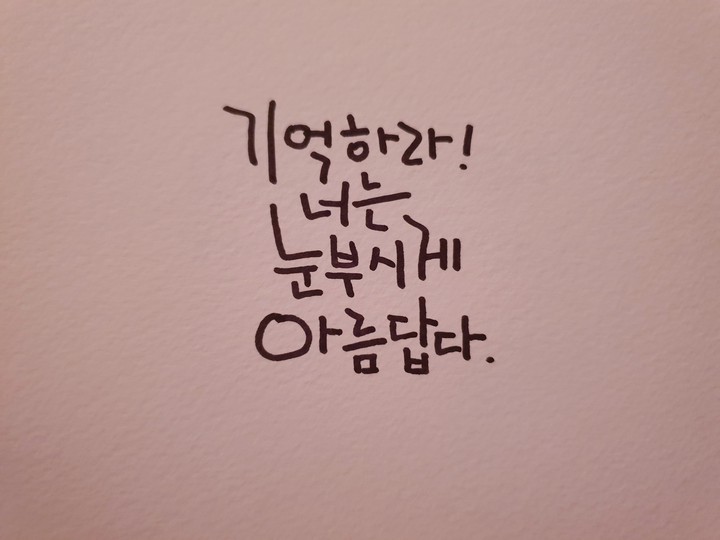 기억하라!
너는
눈부시게
아름답다.